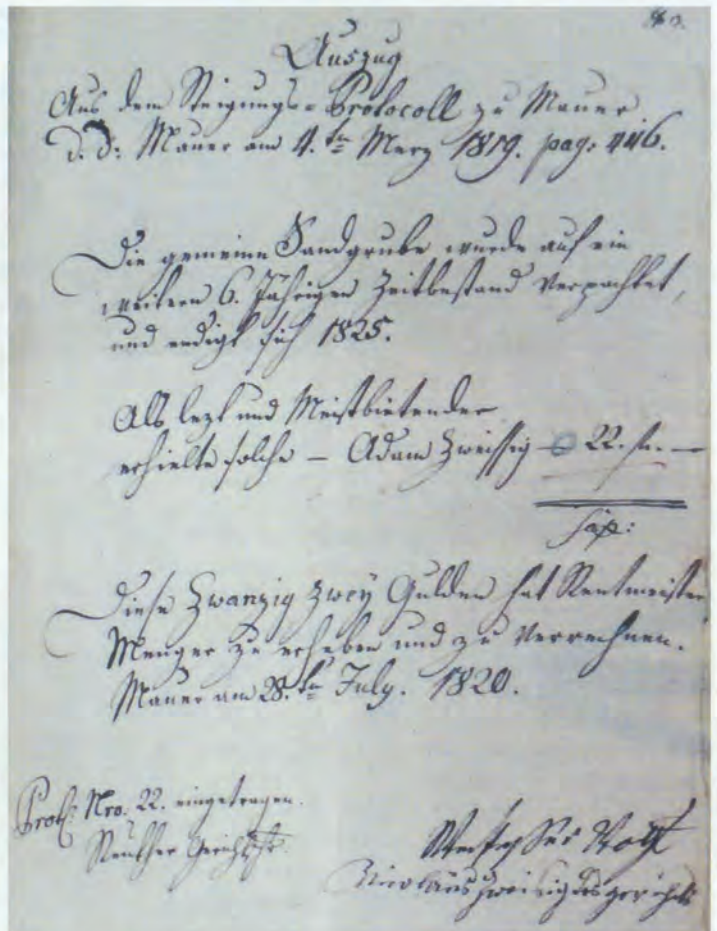 Auszug
Aus dem Steigungs-Protocoll zu Mauer
d. d: Mauer am 4.ten Merz 1819. pag: 446.
Die gemeine Sandgrube wurde auf ein
weitern 6. Jährigen Zeitbestand verpachtet,
und endigt sich 1825.
Als lezt und Meistbietender
erhielte solche – Adam Zweissig 22. fl. —
Diese Zwanzig Zwey Gulden hat Rentmeister
Menger zu erheben und zu verrechnen.
Mauer am 28.ten July. 1820.
Nro. 22. eingetragen.
Vogt
Nicolaus des gerichts